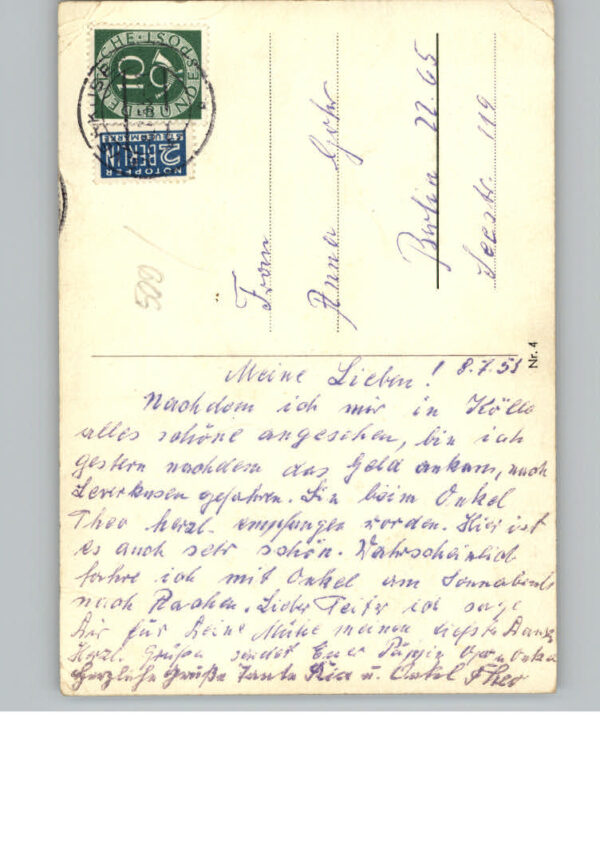 DEUTSCHE BUNDESPOST
10
NOTOPFER
2 BERLIN
STEUERMARKE
500
Frau
Anna
Berlin 22 65
Seestr. 119
Nr. 4
Meine Lieben! 8.7.53
Nachdem ich mir in Kölle
alles schöne angesehen, bin ich
gestern nachdem das Geld ankam, nach
Leverkusen gefahren. Bin beim Onkel
Theo herzl. empfangen worden. Hier ist
es auch sehr schön. Wahrscheinlich
fahre ich mit Onkel am Sonnabend
nach Aachen. Lieber ich sage
Dir für Deine Mühe meinen tiefsten Dank
Herzl. Grüße sendet Euer Opa u Onkel
Herzliche Grüße Tante Ria u. Onkel Theo